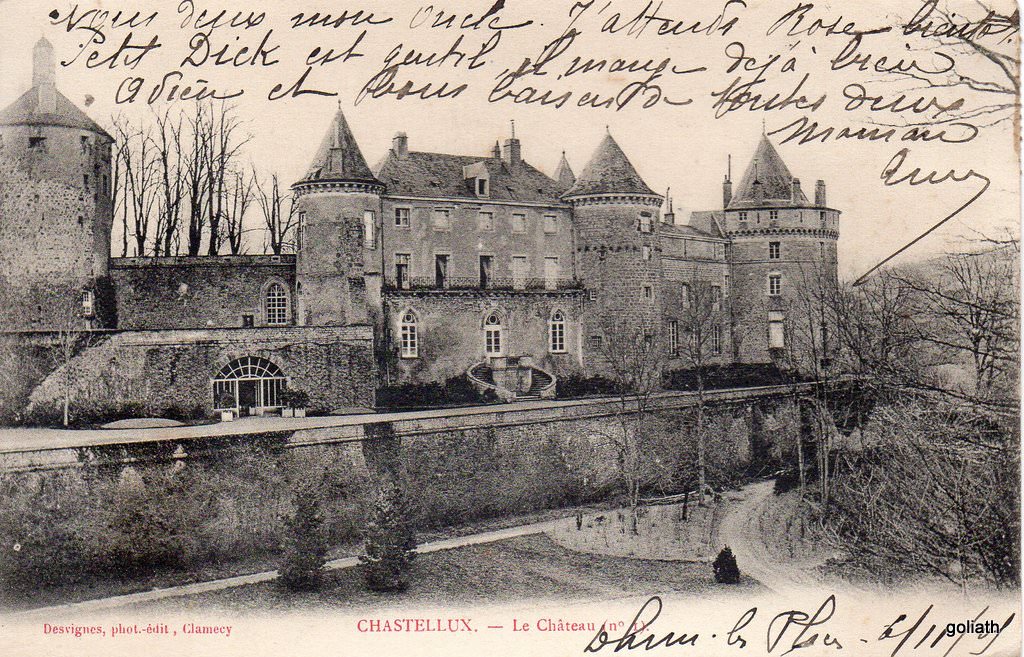 Nous deux mon Oncle. J'attends Rose bientôt
Petit Dick est gentil, il mange déjà bien
Adieu et bons baisers de toutes deux
Maman
Desvignes, phot.-édit, Clamecy
CHASTELLUX. — Le Château (nº 1).
les
goliath